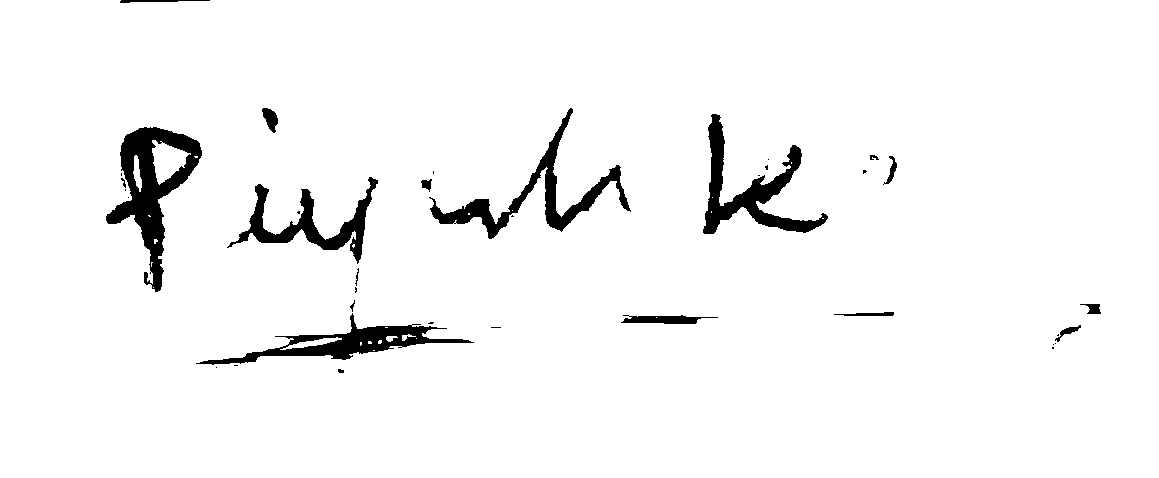 Piyush K